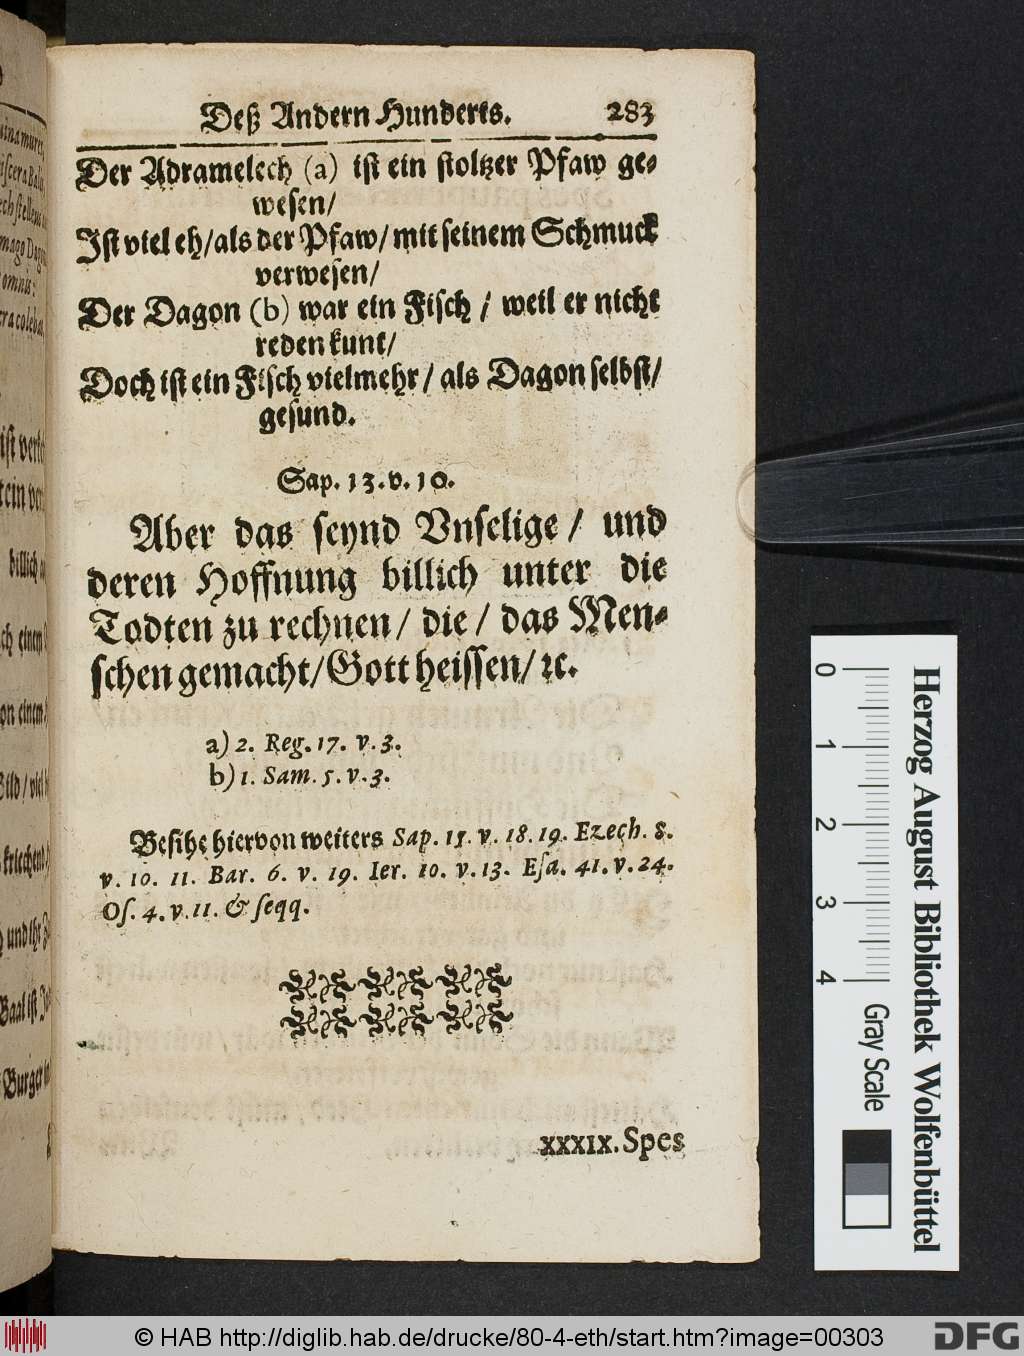 Deß Andern Hunderts. 283
Der Adramelech (a) ist ein stoltzer Pfaw ge-
wesen/
Ist viel eh/als der Pfaw/mit seinem Schmuck
verwesen/
Der Dagon (b) war ein Fisch / weil er nicht
reden kunt/
Doch ist ein Fisch vielmehr/ als Dagon selbst/
gesund.
Sap. 13. v. 10.
Aber das seynd Vnselige / und
deren Hoffnung billich unter die
Todten zu rechnen/ die/ das Men-
schen gemacht/Gott heissen/ ꝛc.
a) 2. Reg. 17. v. 3.
b) 1. Sam. 5. v. 3.
Besihe hiervon weiters Sap. 15. v. 18. 19. Ezech. 8.
v. 10. 11. Bar. 6. v. 19. Ier. 10. v. 13. Esa. 41. v. 24.
Os. 4. v. 11. & seqq.
XXXIX. Spes
0 1 2 3 4
Gray Scale
Herzog August Bibliothek Wolfenbüttel
© HAB http://diglib.hab.de/drucke/80-4-eth/start.htm?image=00303
DFG